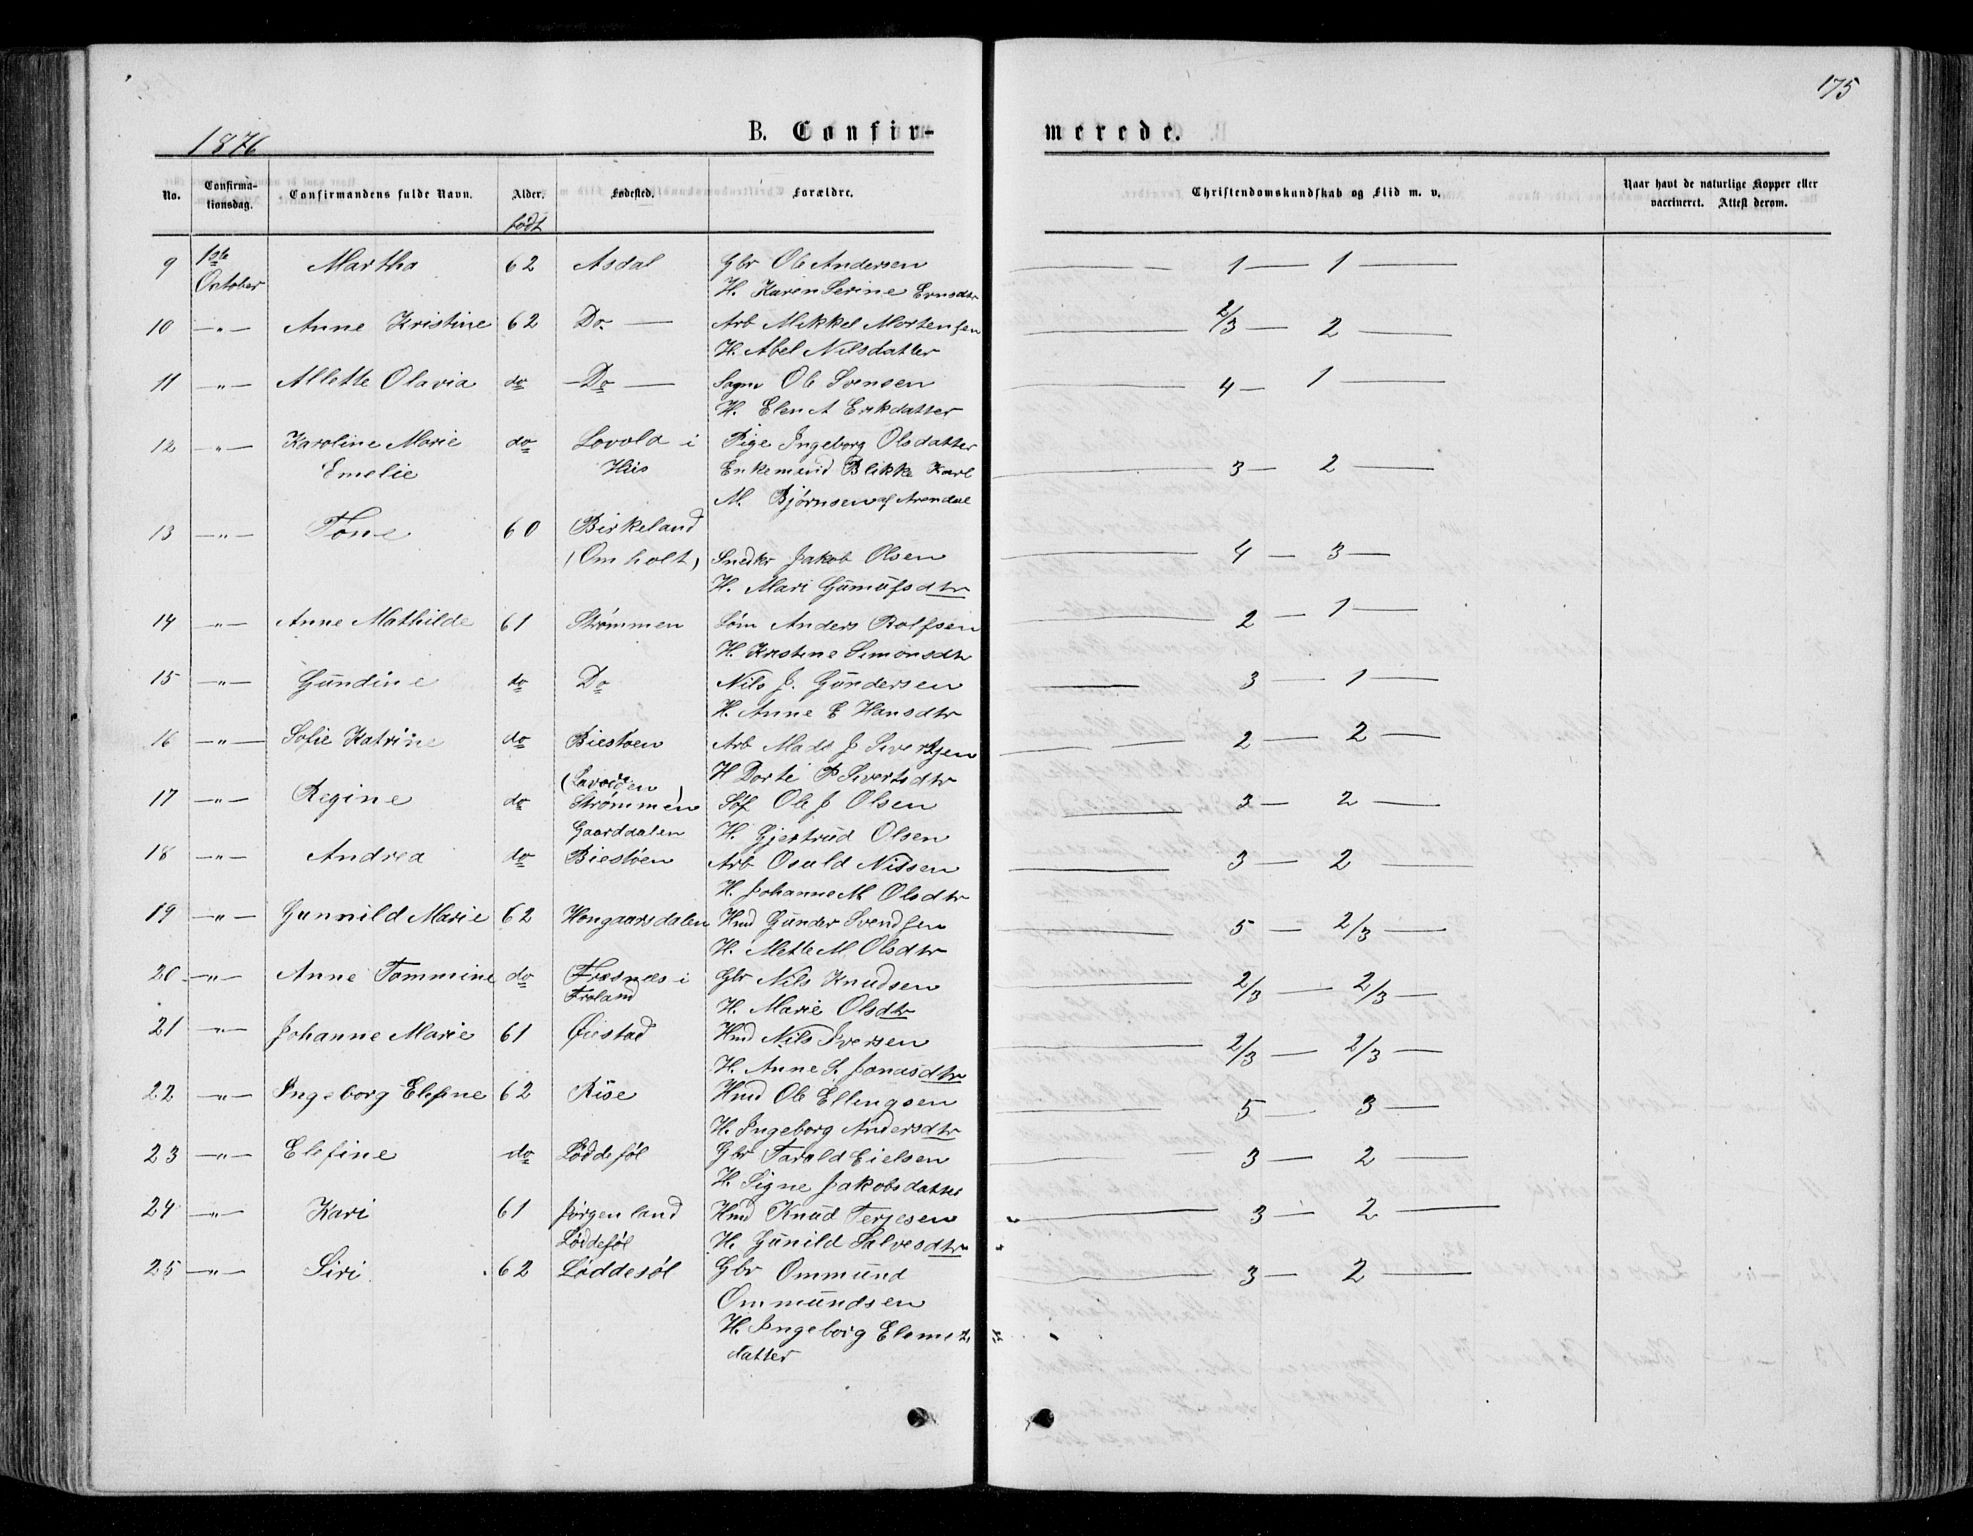 175
1876 B. Confir- merede.
No. Confirma-tionsdag. Confirmandens fulde Navn. Alder. Fødested. Forældre. Christendomskundskab og Flid m. v. Naar havt de naturlige Kopper eller vaccineret. Attest derom.
født
9 1ste October Martha 62 Asdal Gbr Ole Andersen 1 — 1
H. Karen Serine Evnsdtr
10 -"- Anne Kristine 62 Do. Arb Mikkel Mortensen 2/3 — 2
H. Abel Nilsdatter
11 -"- Allette Olavia do Do Sagm Ole Svensen 4 — 1
H. Elen A Erikdatter
12 -"- Karoline Marie do Lovold i Pige Ingeborg Olsdatter
Emelie Hiis Enkemand Blikke Karl 3 — 2
M. Bjørnsen af Arendal
13 -"- Tone 60 Birkeland
(Omholt) Snedkr Jakob Olsen 4 — 3
H. Mari Gumufsdtr
14 -"- Anne Mathilde 61 Strømmen Søm Anders Rolfsen 2 — 1
H. Kristine Simonsdtr
15 -"- Gundine do Do Nils J. Gundersen 3 — 1
H. Anne E Hansdtr
16 -"- Sofie Katrine do Biestøen Arb Mads J Sivertsen 2 — 2
H Dorte P Sivertsdtr
17 -"- Regine do Strømmen Søf Ole J Olsen 3 — 2
Gaarddalen H. Gjertrud Olsen
18 -"- Andrea do Biestøen Arb Osuld Nilssen 3 — 2
H. Johanne M. Olsdtr
19 -"- Gunnild Marie 62 Hongaarsdalen Hmd Gunder Svendsen 5 — 2/3
H. Mette M. Olsdtr
20 -"- Anne Tommine do Fresnes i Gbr Nils Knudsen 2/3 — 2/3
Froland H. Marie Olsdtr
21 -"- Johanne Marie 61 Øiestad Hmd Nils Iversen 2/3 — 2/3
H. Anne S. Jonasdtr
22 -"- Ingeborg Elefine 62 Rise Hmd Ole Ellingsen 5 — 3
H. Ingeborg Andersdtr
23 -"- Elefine do Løddesøl Gbr Tarald Eielsen 3 — 2
H. Signe Jakobsdatter
24 -"- Kari 61 Jørgenland Hmd Knud Terjesen 3 — 2
Løddesøl H. Gunild Salvesdtr
25 -"- Siri 62 Løddesøl Gbr Ommund 3 — 2
Ommundsen
H. Ingeborg Elems
datter